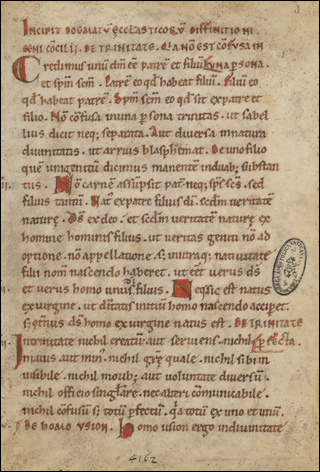 Incipit dogmatū ęcclasticorū diffinitio ni
ceni cōcilij. De trinitate. Q̄a nō est cōfusa in
Credimus unū dm̄ eē patrē et filiū una psona.
et spm̄ scm̄. Patrē eo qd̄ habeat filiū. Filiū eo
qd̄ habeat patrē. Spm̄ scm̄ eo qd̄ sit ex patre et
filio. Nō cōfusa in una psona trinitas ut sabel
lius dicit neq; separata. Aut diversa in natura
divinitatis ut arrius blasphemat. De uno filio
que unigenitū dicimus manente in duab; substan
tiis. Nō carnē assūpsit pat neq; sps scs. sed
filius tantū. Nat ex patre filius di. scdm veritatē
naturę. Ds ex deo. et scdm veritatē naturę ex
homine hominis filius. ut veritas geniti nō ad
optione. nō appellatione. s; in utraq; nativitate
filii nom̄ nascendo haberet. ut eēt verus ds̄
et verus homo unus filius. Neq; sic est natus
ex virgine. ut initiū homo nascendo acciperet.
ds̄ homo ex virgine natus est. De trinitate
In trinitate nichil creatū aut serviens. nichil pfecta.
nichil sibi in
visibile. nichil morib; aut voluntate diversū
nichil officio singulare. nec alteri cōmunicabile.
nichil cōfusū s; totū pfectū. q̄a totū ex uno et unū.
De homo usion. Homo usion ergo in divinitate
4162